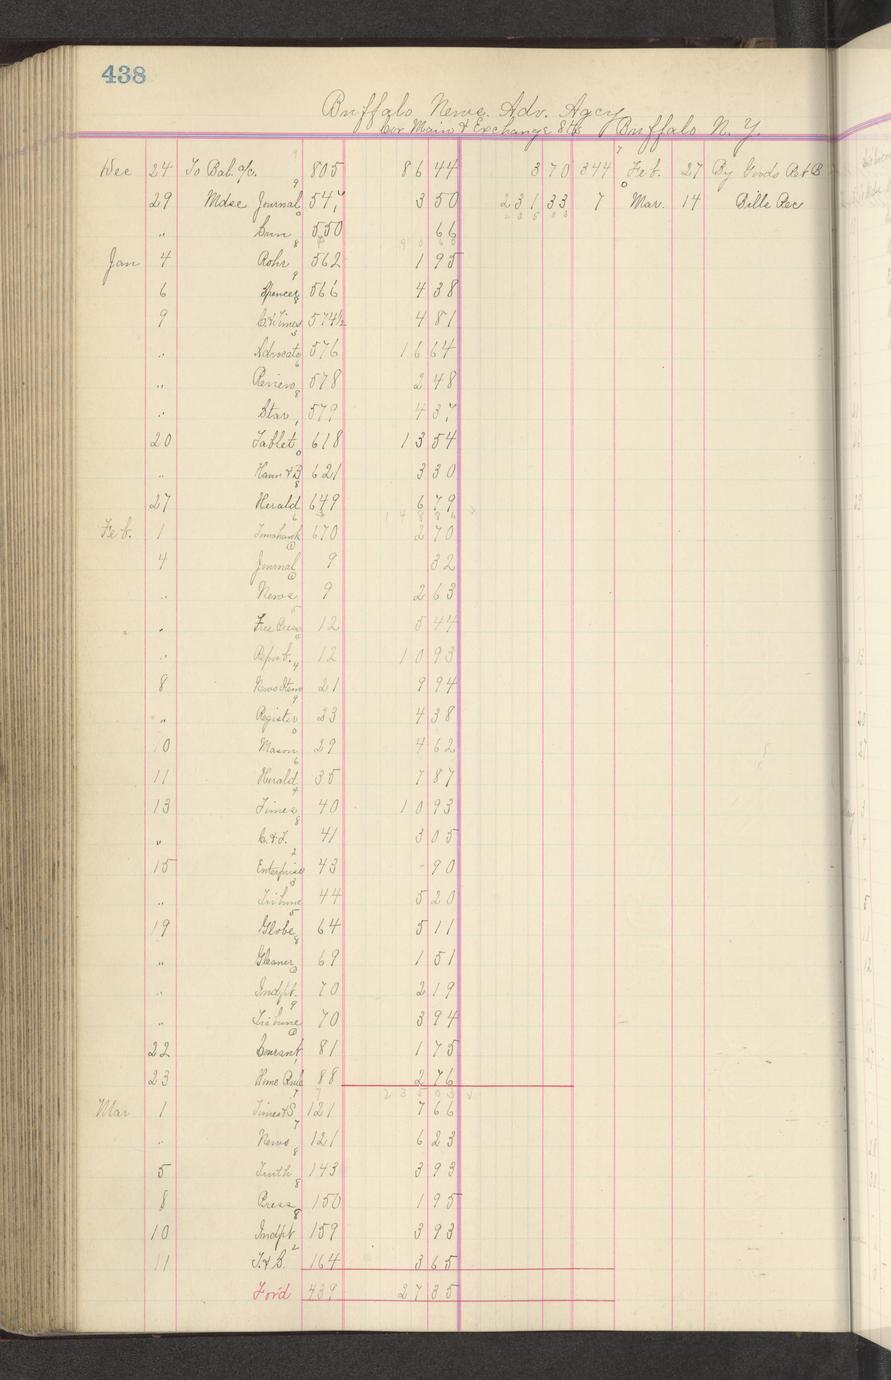 438
Buffalo News. Adv. Agcy
Cor Main & Exchange Sts Buffalo N. Y.
Dec 24 To Bal. a/c. 805 86 44 3 70 344 Feb. 27 By Goods Ret B
29 Mdse Journal 547 3 50 231 33 7 Mar. 14 Bills Rec
" Sun 550 66
Jan 4 Rohr 562 1 95
6 Spencer 566 4 38
9 C. & Times 574½ 4 81
" Advocate 576 16 64
" Review 578 2 48
" Star 579 4 37
20 Tablet 618 13 54
" Hann & B 621 3 30
27 Herald 649 6 79
Feb. 1 Tomahawk 670 2 70
4 Journal 9 32
" News 9 2 63
" Free Press 12 5 44
" Repub. 12 10 93
8 News Item 21 9 94
" Register 23 4 38
10 Mason 29 4 62
11 Herald 35 7 87
13 Times 40 10 93
" C. & T. 41 3 05
15 Enterprise 43 - 90
" Tribune 44 5 20
19 Globe 64 5 11
" Gleaner 69 1 51
" Indpt. 70 2 19
" Tribune 70 3 94
22 Courant 81 1 75
23 Home Rule 88 2 76
235 03
Mar 1 Times & S 121 7 66
" News 121 6 23
5 Truth 143 3 93
8 Press 150 1 95
10 Indpt 159 3 93
11 T. & B. 164 3 65
For'd 439 27 35